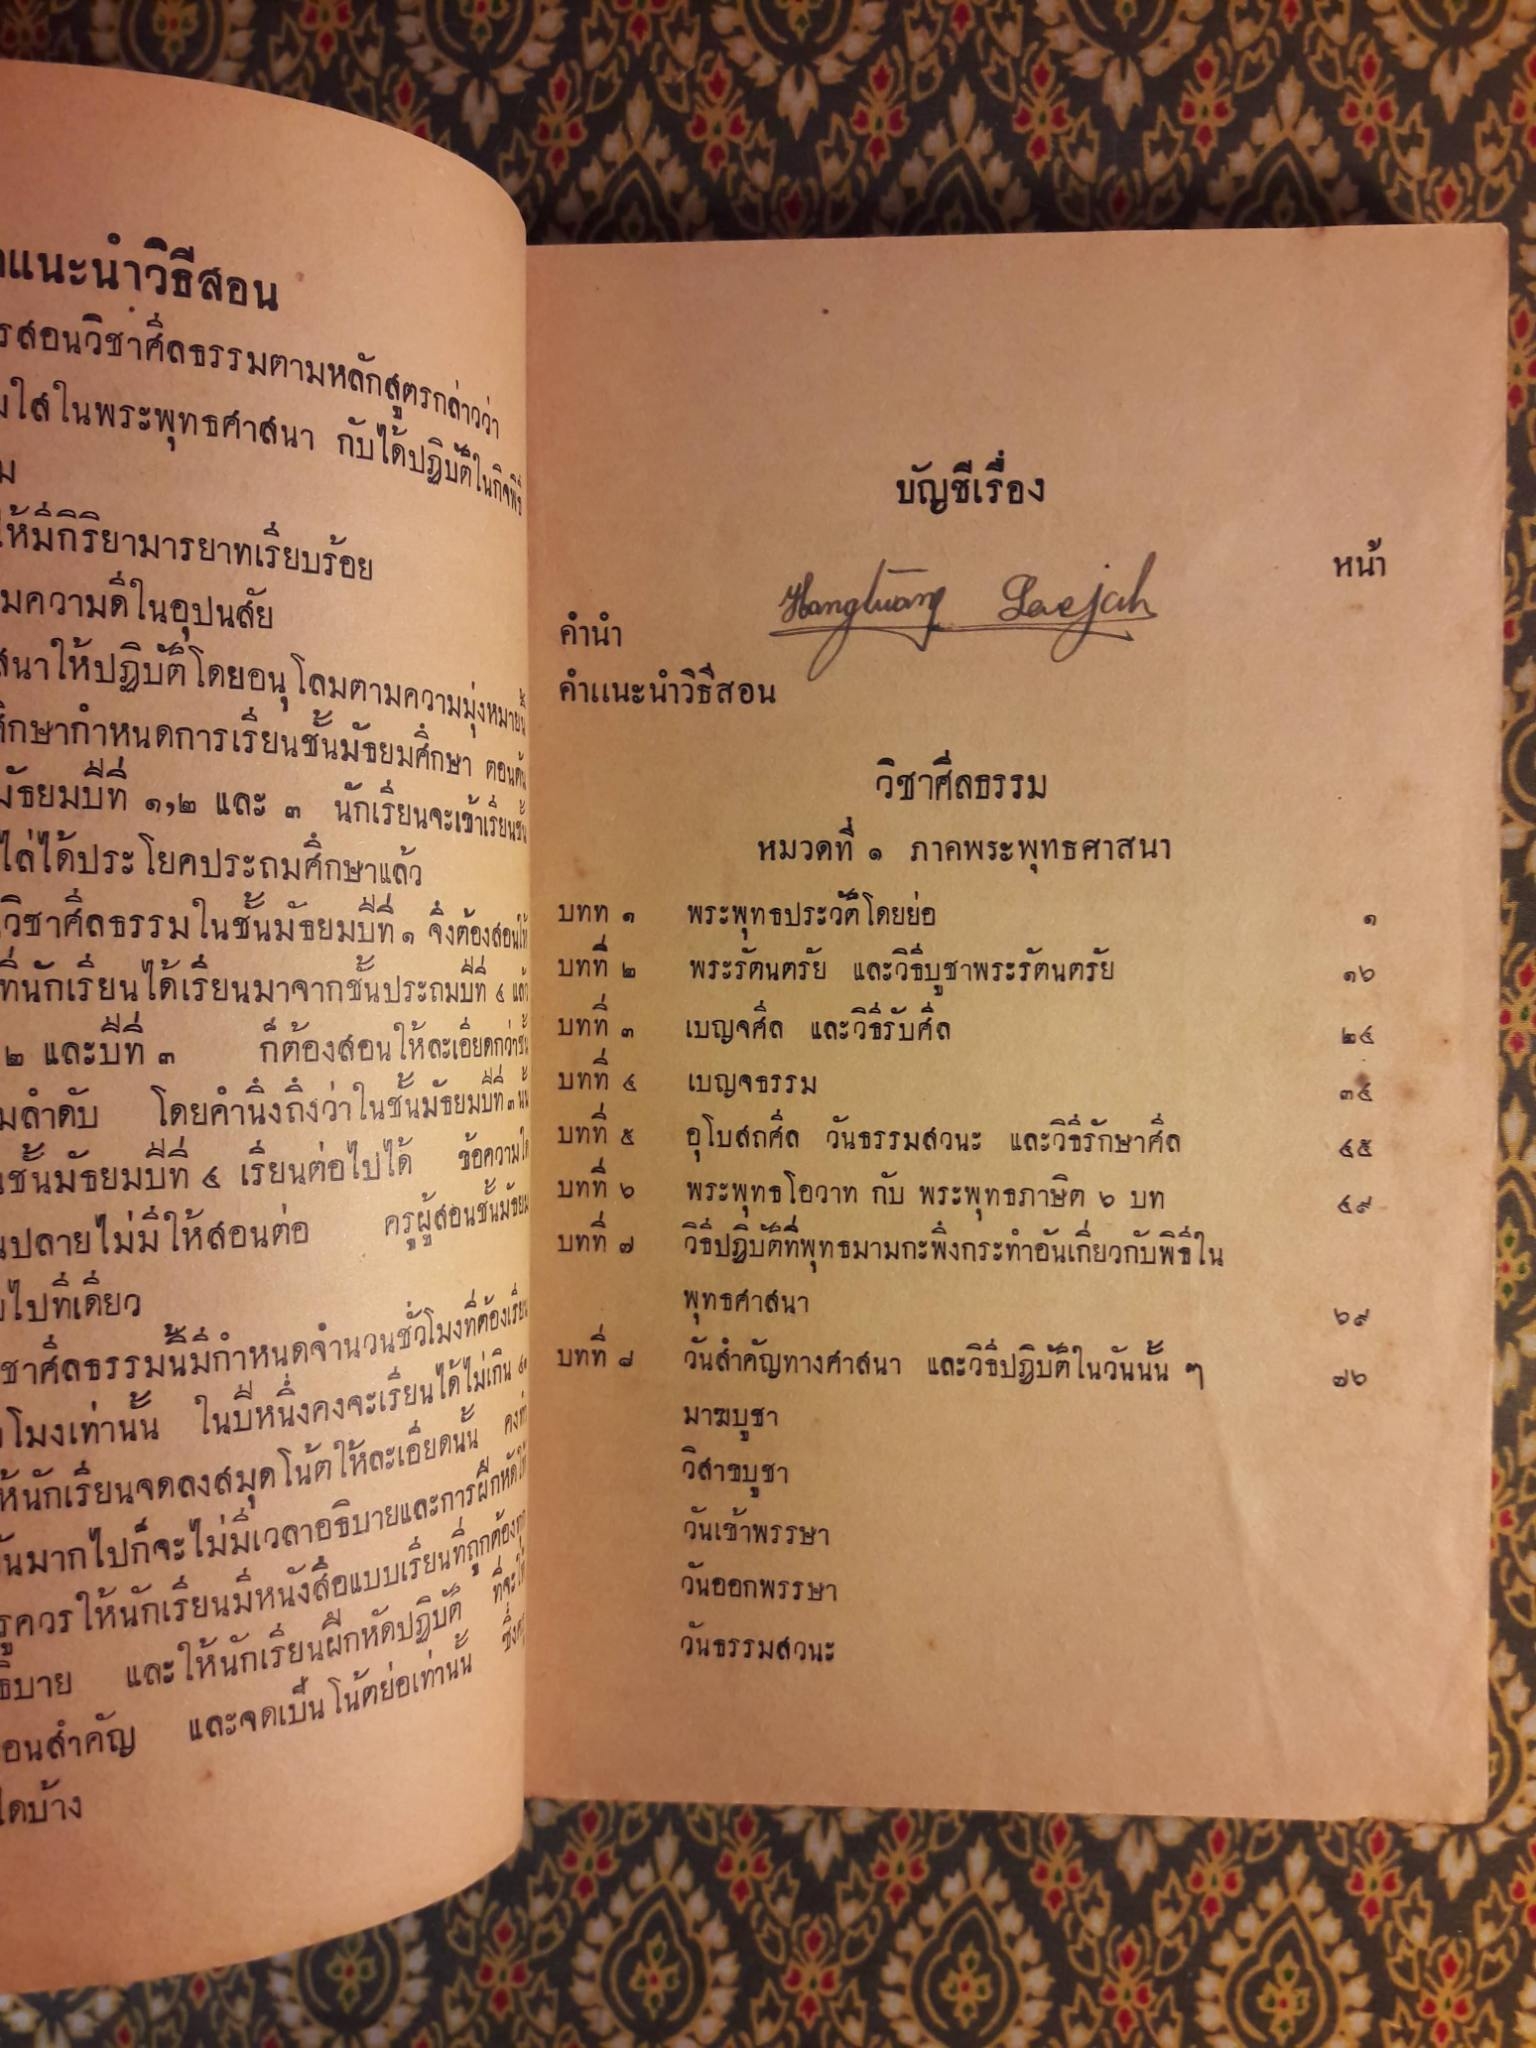 แนะนำวิธีสอน
รสอนวิชาศีลธรรมตามหลักสูตรกล่าวว่า
มใสในพระพุทธศาสนา กับได้ปฏิบัติในกิจพิธี
ม
ให้มีกิริยามารยาทเรียบร้อย
มความดีในอุปนสัย
สนาให้ปฏิบัติโดยอนุโลมตามความมุ่งหมายนี้
ศึกษากำหนดการเรียนชั้นมัธยมศึกษา ตอนต้น
มัธยมปีที่ ๑,๒ และ ๓ นักเรียนจะเข้าเรียนชั้น
ไล่ได้ประโยคประถมศึกษาแล้ว
วิชาศีลธรรมในชั้นมัธยมปีที่ ๑ จึงต้องสอนให้
ที่นักเรียนได้เรียนมาจากชั้นประถมปีที่ ๔ แล้ว
๒ และปีที่ ๓ ก็ต้องสอนให้ละเอียดกว่าชั้น
มลำดับ โดยคำนึงถึงว่าในชั้นมัธยมปีที่ ๓ นั้น
นชั้นมัธยมปีที่ ๔ เรียนต่อไปได้ ข้อความใด
นปลายไม่มีให้สอนต่อ ครูผู้สอนชั้นมัธยม
ไปทีเดียว
ชาศีลธรรมนี้มีกำหนดจำนวนชั่วโมงที่ต้องเรียน
โมงเท่านั้น ในปีหนึ่งคงจะเรียนได้ไม่เกิน
ห้นักเรียนจดลงสมุดโน้ตให้ละเอียดนั้น คงทำ
นมากไปก็จะไม่มีเวลาอธิบายและการฝึกหัดให้
รูควรให้นักเรียนมีหนังสือแบบเรียนที่ถูกต้อง
ธิบาย และให้นักเรียนฝึกหัดปฏิบัติ ที่จะให้
อนสำคัญ และจดเป็นโน้ตย่อเท่านั้น ซึ่ง
ใดบ้าง
บัญชีเรื่อง
หน้า
คำนำ
คำแนะนำวิธีสอน
วิชาศีลธรรม
หมวดที่ ๑ ภาคพระพุทธศาสนา
บทท ๑ พระพุทธประวัติโดยย่อ ๑
บทที่ ๒ พระรัตนตรัย และวิธีบูชาพระรัตนตรัย ๑๖
บทที่ ๓ เบญจศีล และวิธีรับศีล ๒๔
บทที่ ๔ เบญจธรรม ๓๔
บทที่ ๕ อุโบสถศีล วันธรรมสวนะ และวิธีรักษาศีล ๔๕
บทที่ ๖ พระพุทธโอวาท กับ พระพุทธภาษิต ๖ บท ๔๙
บทที่ ๗ วิธีปฏิบัติที่พุทธมามกะพึงกระทำอันเกี่ยวกับพิธีใน
พุทธศาสนา ๖๙
บทที่ ๘ วันสำคัญทางศาสนา และวิธีปฏิบัติในวันนั้น ๆ ๗๖
มาฆบูชา
วิสาขบูชา
วันเข้าพรรษา
วันออกพรรษา
วันธรรมสวนะ